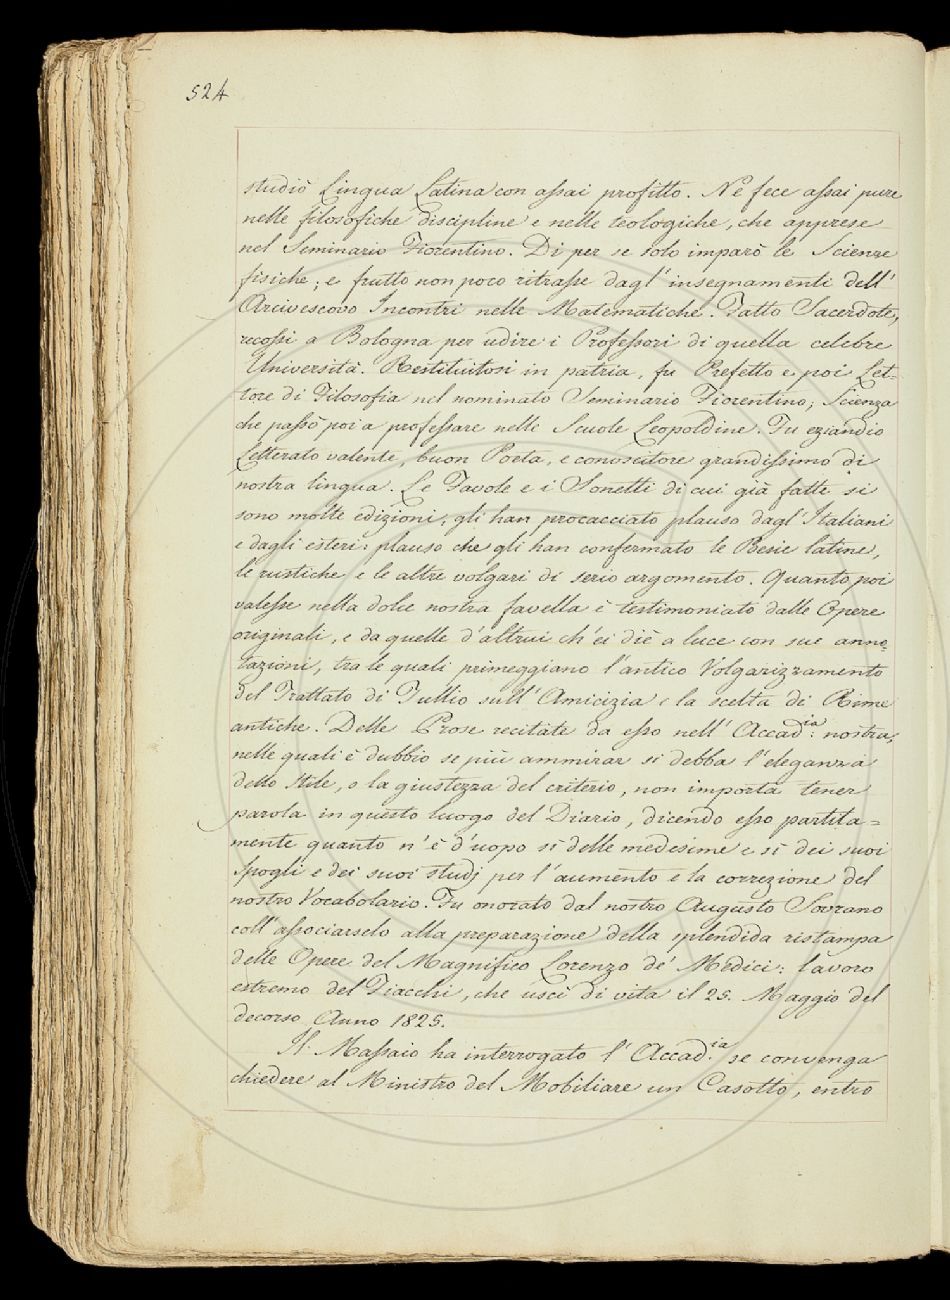 524
studiò Lingua Latina con assai profitto. Nè fece assai pure
nelle filosofiche discipline e nelle teologiche, che apprese
nel Seminario Fiorentino. Di per se solo imparò le Scienze
fisiche; e frutto non poco ritrasse dagl' insegnamenti dell'
Arcivescovo Incontri nelle Matematiche. Fatto Sacerdote,
recossi a Bologna per udire i Professori di quella celebre
Università. Restituitosi in patria, fu Prefetto e poi Let-
tore di Filosofia nel nominato Seminario Fiorentino; Scienza
che passò poi a professare nelle Scuole Leopoldine. Fu eziandio
Letterato valente, buon Poeta, e conoscitore grandissimo di
nostra lingua. Le Favole e i Sonetti di cui già fatte si
sono molte edizioni, gli han procacciato plauso dagl' Italiani
e dagli esteri; plauso che gli han confermato le Besie latine,
le rustiche e le altre volgari di serio argomento. Quanto poi
valesse nella dolce nostra favella è testimoniato dalle Opere
originali, e da quelle d'altrui ch' ei diè a luce con sue anno-
tazioni, tra le quali primeggiano l'antico Volgarizzamento
del Trattato di Tullio sull' Amicizia e la scelta di Rime
antiche. Delle Prose recitate da esso nell' Accad.ia nostra,
nelle quali è dubbio se più ammirar si debba l'eleganza
dello Stile, o la giustezza del criterio, non importa tener
parola in questo luogo del Diario, dicendo esso partita=
mente quanto n' è d'uopo sì delle medesime e sì dei suoi
spogli e dei suoi studj per l'aumento e la correzione del
nostro Vocabolario. Fu onorato dal nostro Augusto Sovrano
coll' associarselo alla preparazione della splendida ristampa
delle Opere del Magnifico Lorenzo de' Medici: lavoro
estremo del Fiacchi, che uscì di vita il 25. Maggio del
decorso Anno 1825.
Il Massaio ha interrogato l' Accad.ia se convenga
chiedere al Ministro del Mobiliare un Casotto, entro